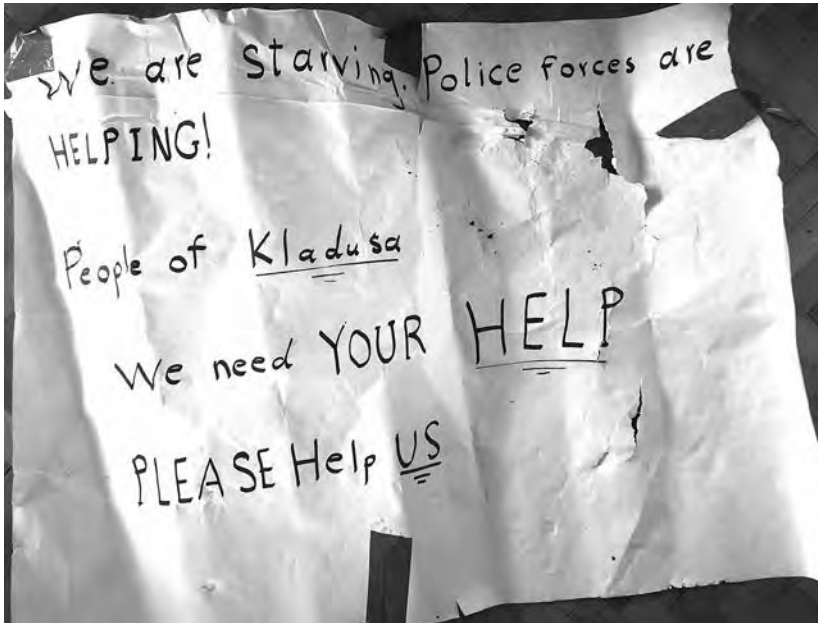 We are starving. Police forces are
HELPING!
People of Kladusa
We need YOUR HELP
PLEASE Help US